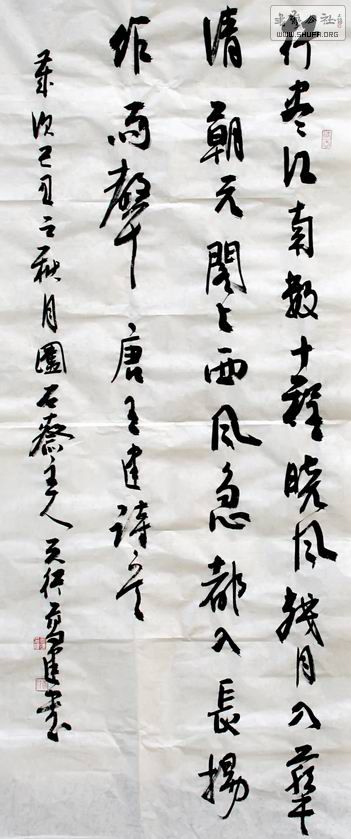 行盡江南數十程曉風殘月入華
清朝元閣上西風急都入長楊
作雨聲 唐王建詩
歲次己丑之秋月園石齋主人建書
公社
WWW.SHUFA.ORG